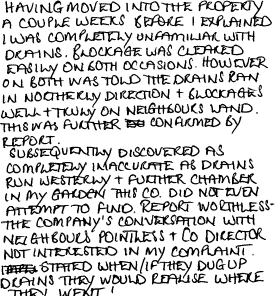 HAVING MOVED INTO THE PROPERTY
A COUPLE WEEKS BEFORE I EXPLAINED
I WAS COMPLETELY UNFAMILIAR WITH
DRAINS. BLOCKAGE WAS CLEARED
EASILY ON BOTH OCCASIONS. HOWEVER
ON BOTH WAS TOLD THE DRAINS RAN
IN NORTHERLY DIRECTION + BLOCKAGES
WELL + TRULY ON NEIGHBOURS LAND.
THIS WAS FURTHER CONFIRMED BY
REPORT.
SUBSEQUENTLY DISCOVERED AS
COMPLETELY INACCURATE AS DRAINS
RUN WESTERLY + FURTHER CHAMBER
IN MY GARDEN THIS CO. DID NOT EVEN
ATTEMPT TO FIND. REPORT WORTHLESS-
THE COMPANY'S CONVERSATION WITH
NEIGHBOURS POINTLESS + CO DIRECTOR
NOT INTERESTED IN MY COMPLAINT.
STATED WHEN/IF THEY DUG UP
DRAINS THEY WOULD REALISE WHERE
THEY WENT!